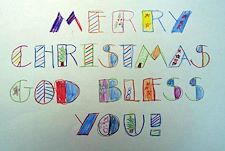 MERRY
CHRISTMAS
GOD BLESS
YOU!